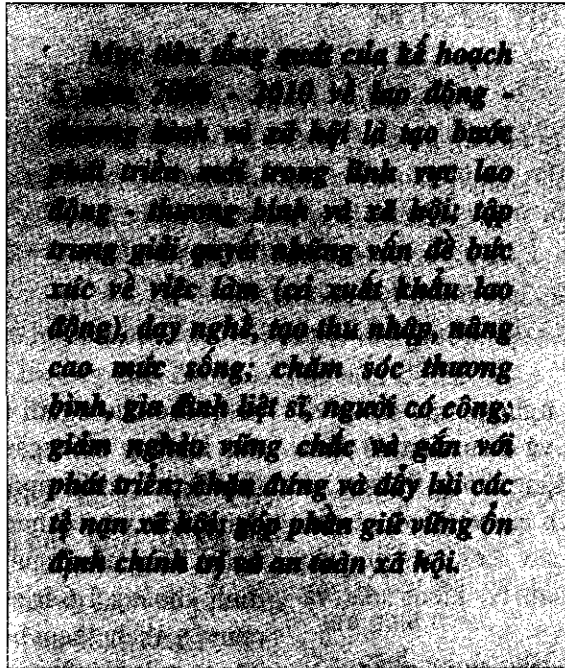 Mục tiêu tổng quát của kế hoạch
5 năm 2006 - 2010 về lao động -
thương binh và xã hội là tạo bước
phát triển mới trong lĩnh vực lao
động - thương binh và xã hội; tập
trung giải quyết những vấn đề bức
xúc về việc làm (cả xuất khẩu lao
động), dạy nghề, tạo thu nhập, nâng
cao mức sống; chăm sóc thương
binh, gia đình liệt sĩ, người có công;
giảm nghèo vững chắc và gắn với
phát triển; chặn đứng và đẩy lùi các
tệ nạn xã hội; góp phần giữ vững ổn
định chính trị và an toàn xã hội.